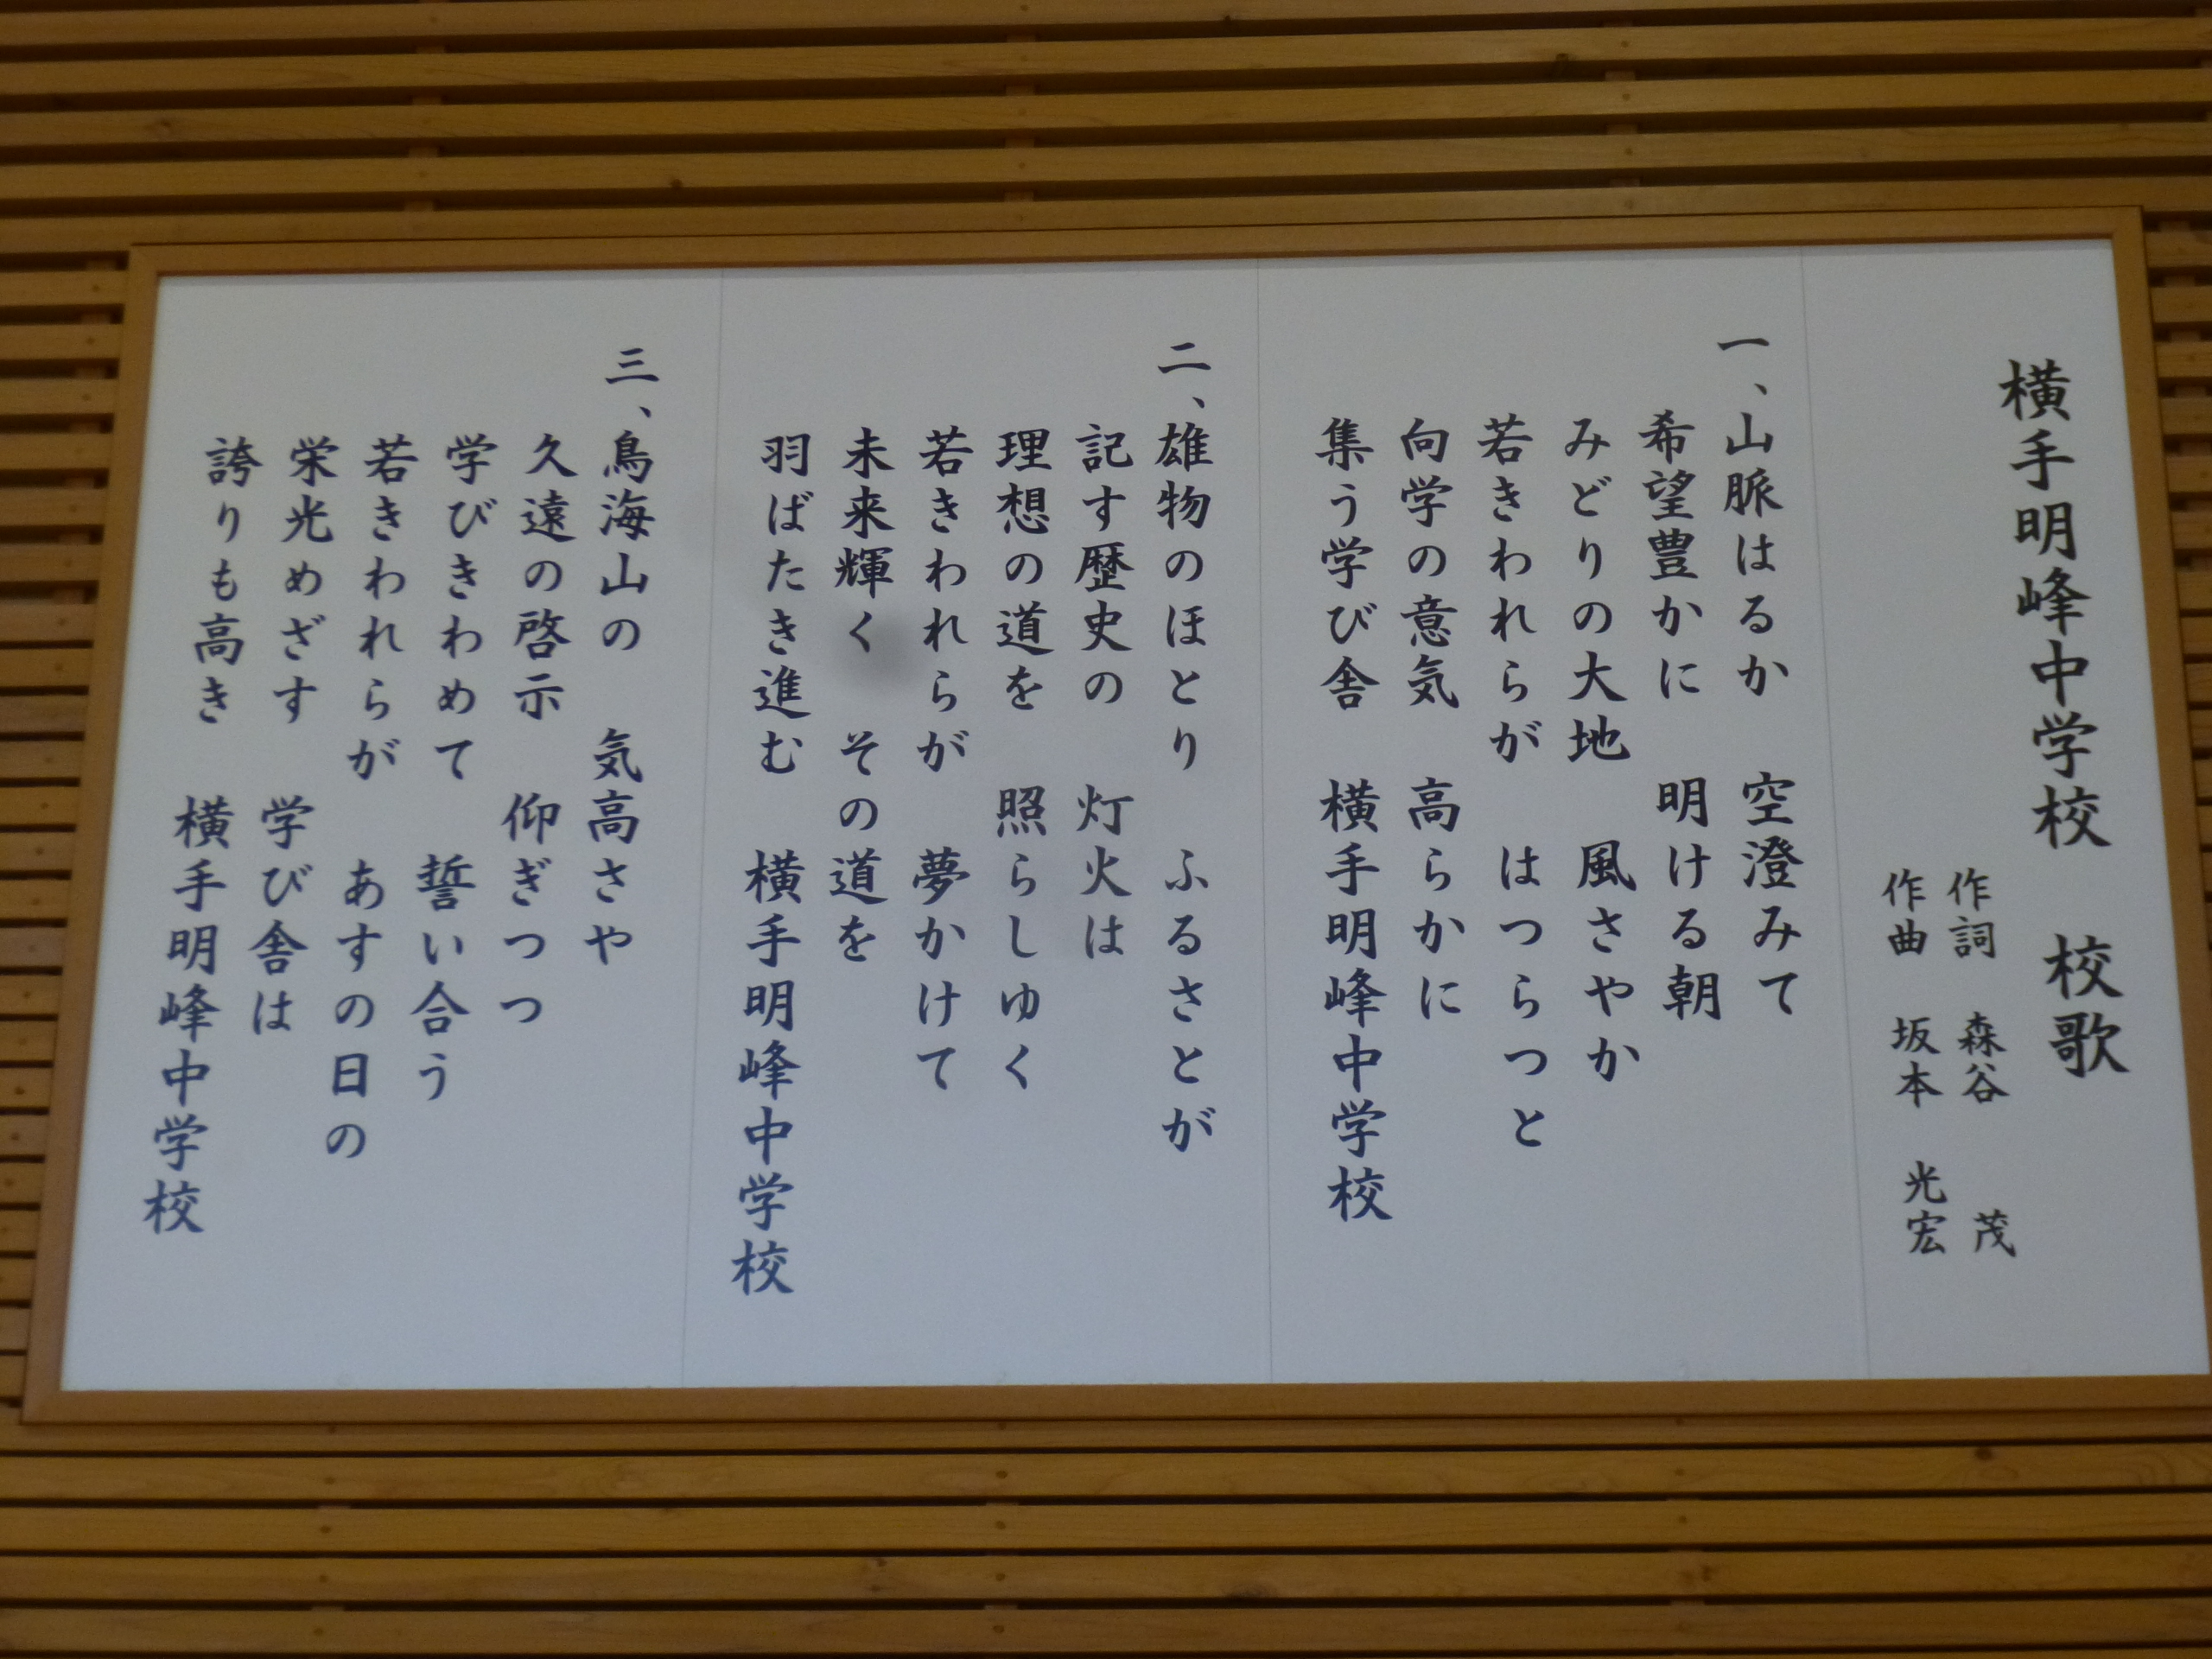 横手明峰中学校　校歌
作詞　森谷　茂
作曲　坂本　光宏
一、山脈はるか　空澄みて
希望豊かに　明ける朝
みどりの大地　風さやか
若きわれらが　はつらつと
向学の意気　高らかに
集う学び舎　横手明峰中学校
二、雄物のほとり　ふるさとが
記す歴史の　灯火は
理想の道を　照らしゆく
若きわれらが　夢かけて
未来輝く　その道を
羽ばたき進む　横手明峰中学校
三、鳥海山の　気高さや
久遠の啓示　仰ぎつつ
学びきわめて　誓い合う
若きわれらが　あすの日の
栄光めざす　学び舎は
誇りも高き　横手明峰中学校